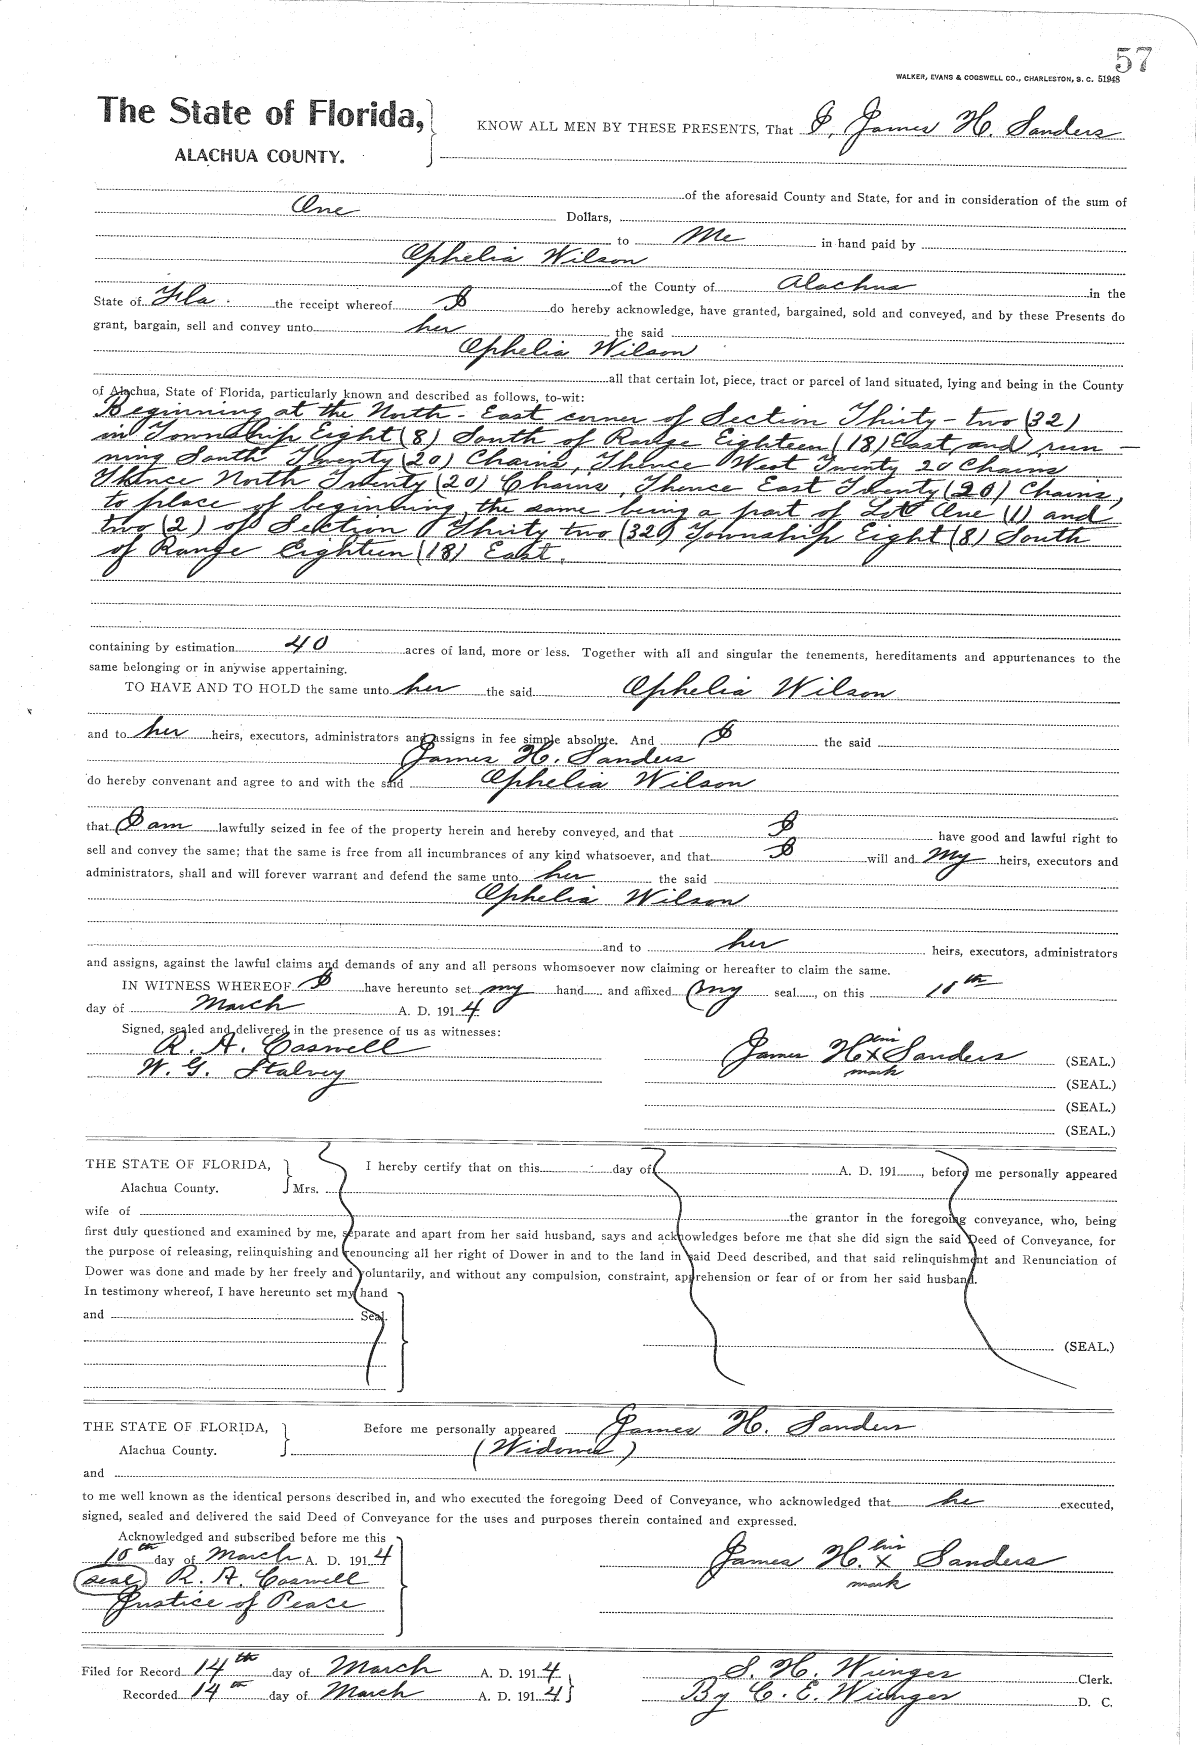 57
WALKER, EVANS & COGSWELL CO., CHARLESTON, S. C. 51948
The State of Florida,
ALACHUA COUNTY.
KNOW ALL MEN BY THESE PRESENTS, That I, James H. Sanders
of the aforesaid County and State, for and in consideration of the sum of
One Dollars,
to Me in hand paid by
Ophelia Wilson
of the County of Alachua in the
State of Fla. the receipt whereof I do hereby acknowledge, have granted, bargained, sold and conveyed, and by these Presents do
grant, bargain, sell and convey unto her the said
Ophelia Wilson
all that certain lot, piece, tract or parcel of land situated, lying and being in the County
of Alachua, State of Florida, particularly known and described as follows, to-wit:
Beginning at the North-East corner of Section Thirty-two (32)
in Township Eight (8) South of Range Eighteen (18) East and run-
ning South Twenty (20) Chains, Thence West Twenty 20 Chains
Thence North Twenty (20) Chains, Thence East Twenty (20) Chains,
to place of beginning, the same being a part of Lot One (1) and
two (2) of Section Thirty two (32) Township Eight (8) South
of Range Eighteen (18) East.
containing by estimation 40 acres of land, more or less. Together with all and singular the tenements, hereditaments and appurtenances to the
same belonging or in anywise appertaining.
TO HAVE AND TO HOLD the same unto her the said Ophelia Wilson
and to her heirs, executors, administrators and assigns in fee simple absolute. And I the said
James H. Sanders
do hereby convenant and agree to and with the said Ophelia Wilson
that I am lawfully seized in fee of the property herein and hereby conveyed, and that I have good and lawful right to
sell and convey the same; that the same is free from all incumbrances of any kind whatsoever, and that I will and my heirs, executors and
administrators, shall and will forever warrant and defend the same unto her the said
Ophelia Wilson
and to her heirs, executors, administrators
and assigns, against the lawful claims and demands of any and all persons whomsoever now claiming or hereafter to claim the same.
IN WITNESS WHEREOF I have hereunto set my hand and affixed my seal, on this 10th
day of March A. D. 1914
Signed, sealed and delivered in the presence of us as witnesses:
R. A. Caswell
W. G. Stalvey
his
James H. x Sanders (SEAL.)
mark
(SEAL.)
(SEAL.)
(SEAL.)
THE STATE OF FLORIDA,
Alachua County.
I hereby certify that on this day of A. D. 191, before me personally appeared
Mrs.
wife of the grantor in the foregoing conveyance, who, being
first duly questioned and examined by me, separate and apart from her said husband, says and acknowledges before me that she did sign the said Deed of Conveyance, for
the purpose of releasing, relinquishing and renouncing all her right of Dower in and to the land in said Deed described, and that said relinquishment and Renunciation of
Dower was done and made by her freely and voluntarily, and without any compulsion, constraint, apprehension or fear of or from her said husband.
In testimony whereof, I have hereunto set my hand
and Seal.
(SEAL.)
THE STATE OF FLORIDA,
Alachua County.
Before me personally appeared James H. Sanders
(Widower)
and
to me well known as the identical persons described in, and who executed the foregoing Deed of Conveyance, who acknowledged that he executed,
signed, sealed and delivered the said Deed of Conveyance for the uses and purposes therein contained and expressed.
Acknowledged and subscribed before me this
10th day of March A. D. 1914
(seal) R. A. Caswell
Justice of Peace
his
James H. x Sanders
mark
Filed for Record 14th day of March A. D. 1914
Recorded 14th day of March A. D. 1914
S. H. Wienges Clerk.
By C. E. Wienges D. C.